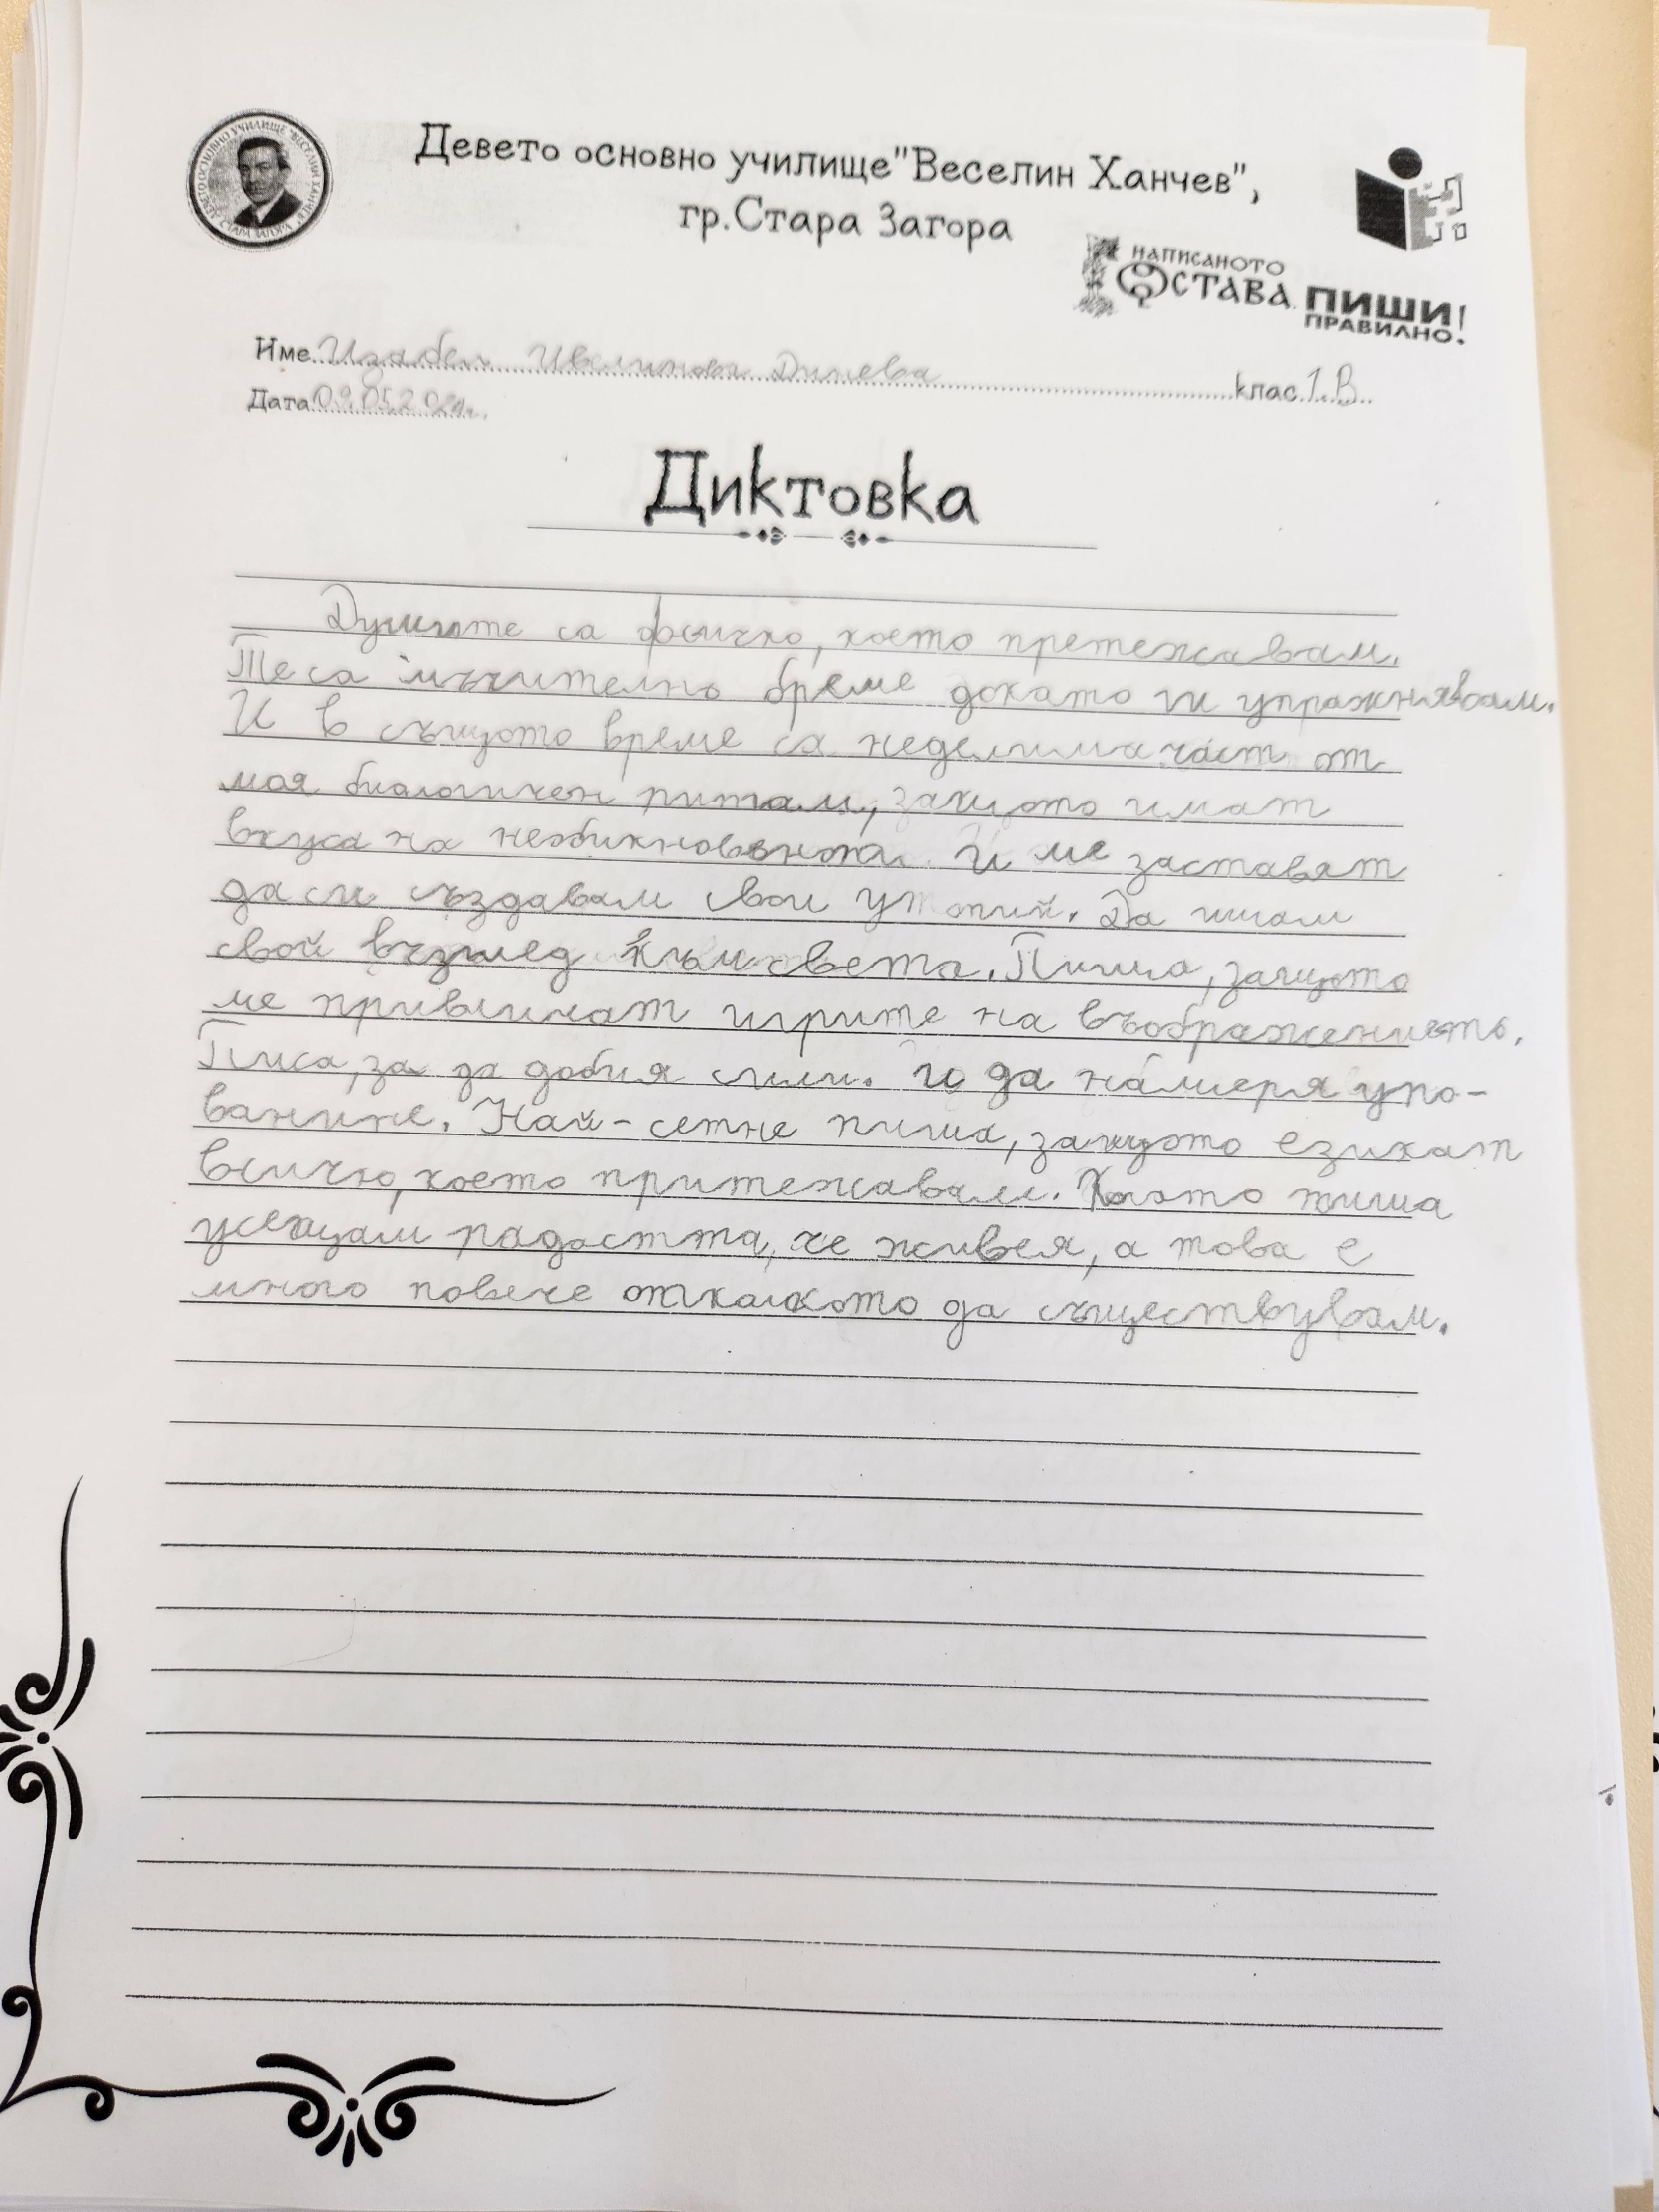 ДЕВЕТО ОСНОВНО УЧИЛИЩЕ "ВЕСЕЛИН ХАНЧЕВ" СТАРА ЗАГОРА
Девето основно училище "Веселин Ханчев",
гр.Стара Загора
НАПИСАНОТО
ОСТАВА. ПИШИ
ПРАВИЛНО!
Име Изабел Ивелинова Динева клас 7.В
Дата 09.05.202 г.
Диктовка
Думите са всичко, което претежавам.
Те са мъчително бреме докато ги упражнявам.
И в същото време са неделима част от
моя биологичен ритам, защото имат
вкуса на необикновенота. И ме заставят
да си създавам свои утопий. Да имам
свой възглед към света. Пиша, защото
ме привличат игрите на въображението.
Писа, за да добия сили. И да намеря упо-
вание. Най-сетне пиша, защото езикат
всичко, което притежавам. Когато пиша
усещам радостта, че живея, а това е
много повече отколкото да съществувам.